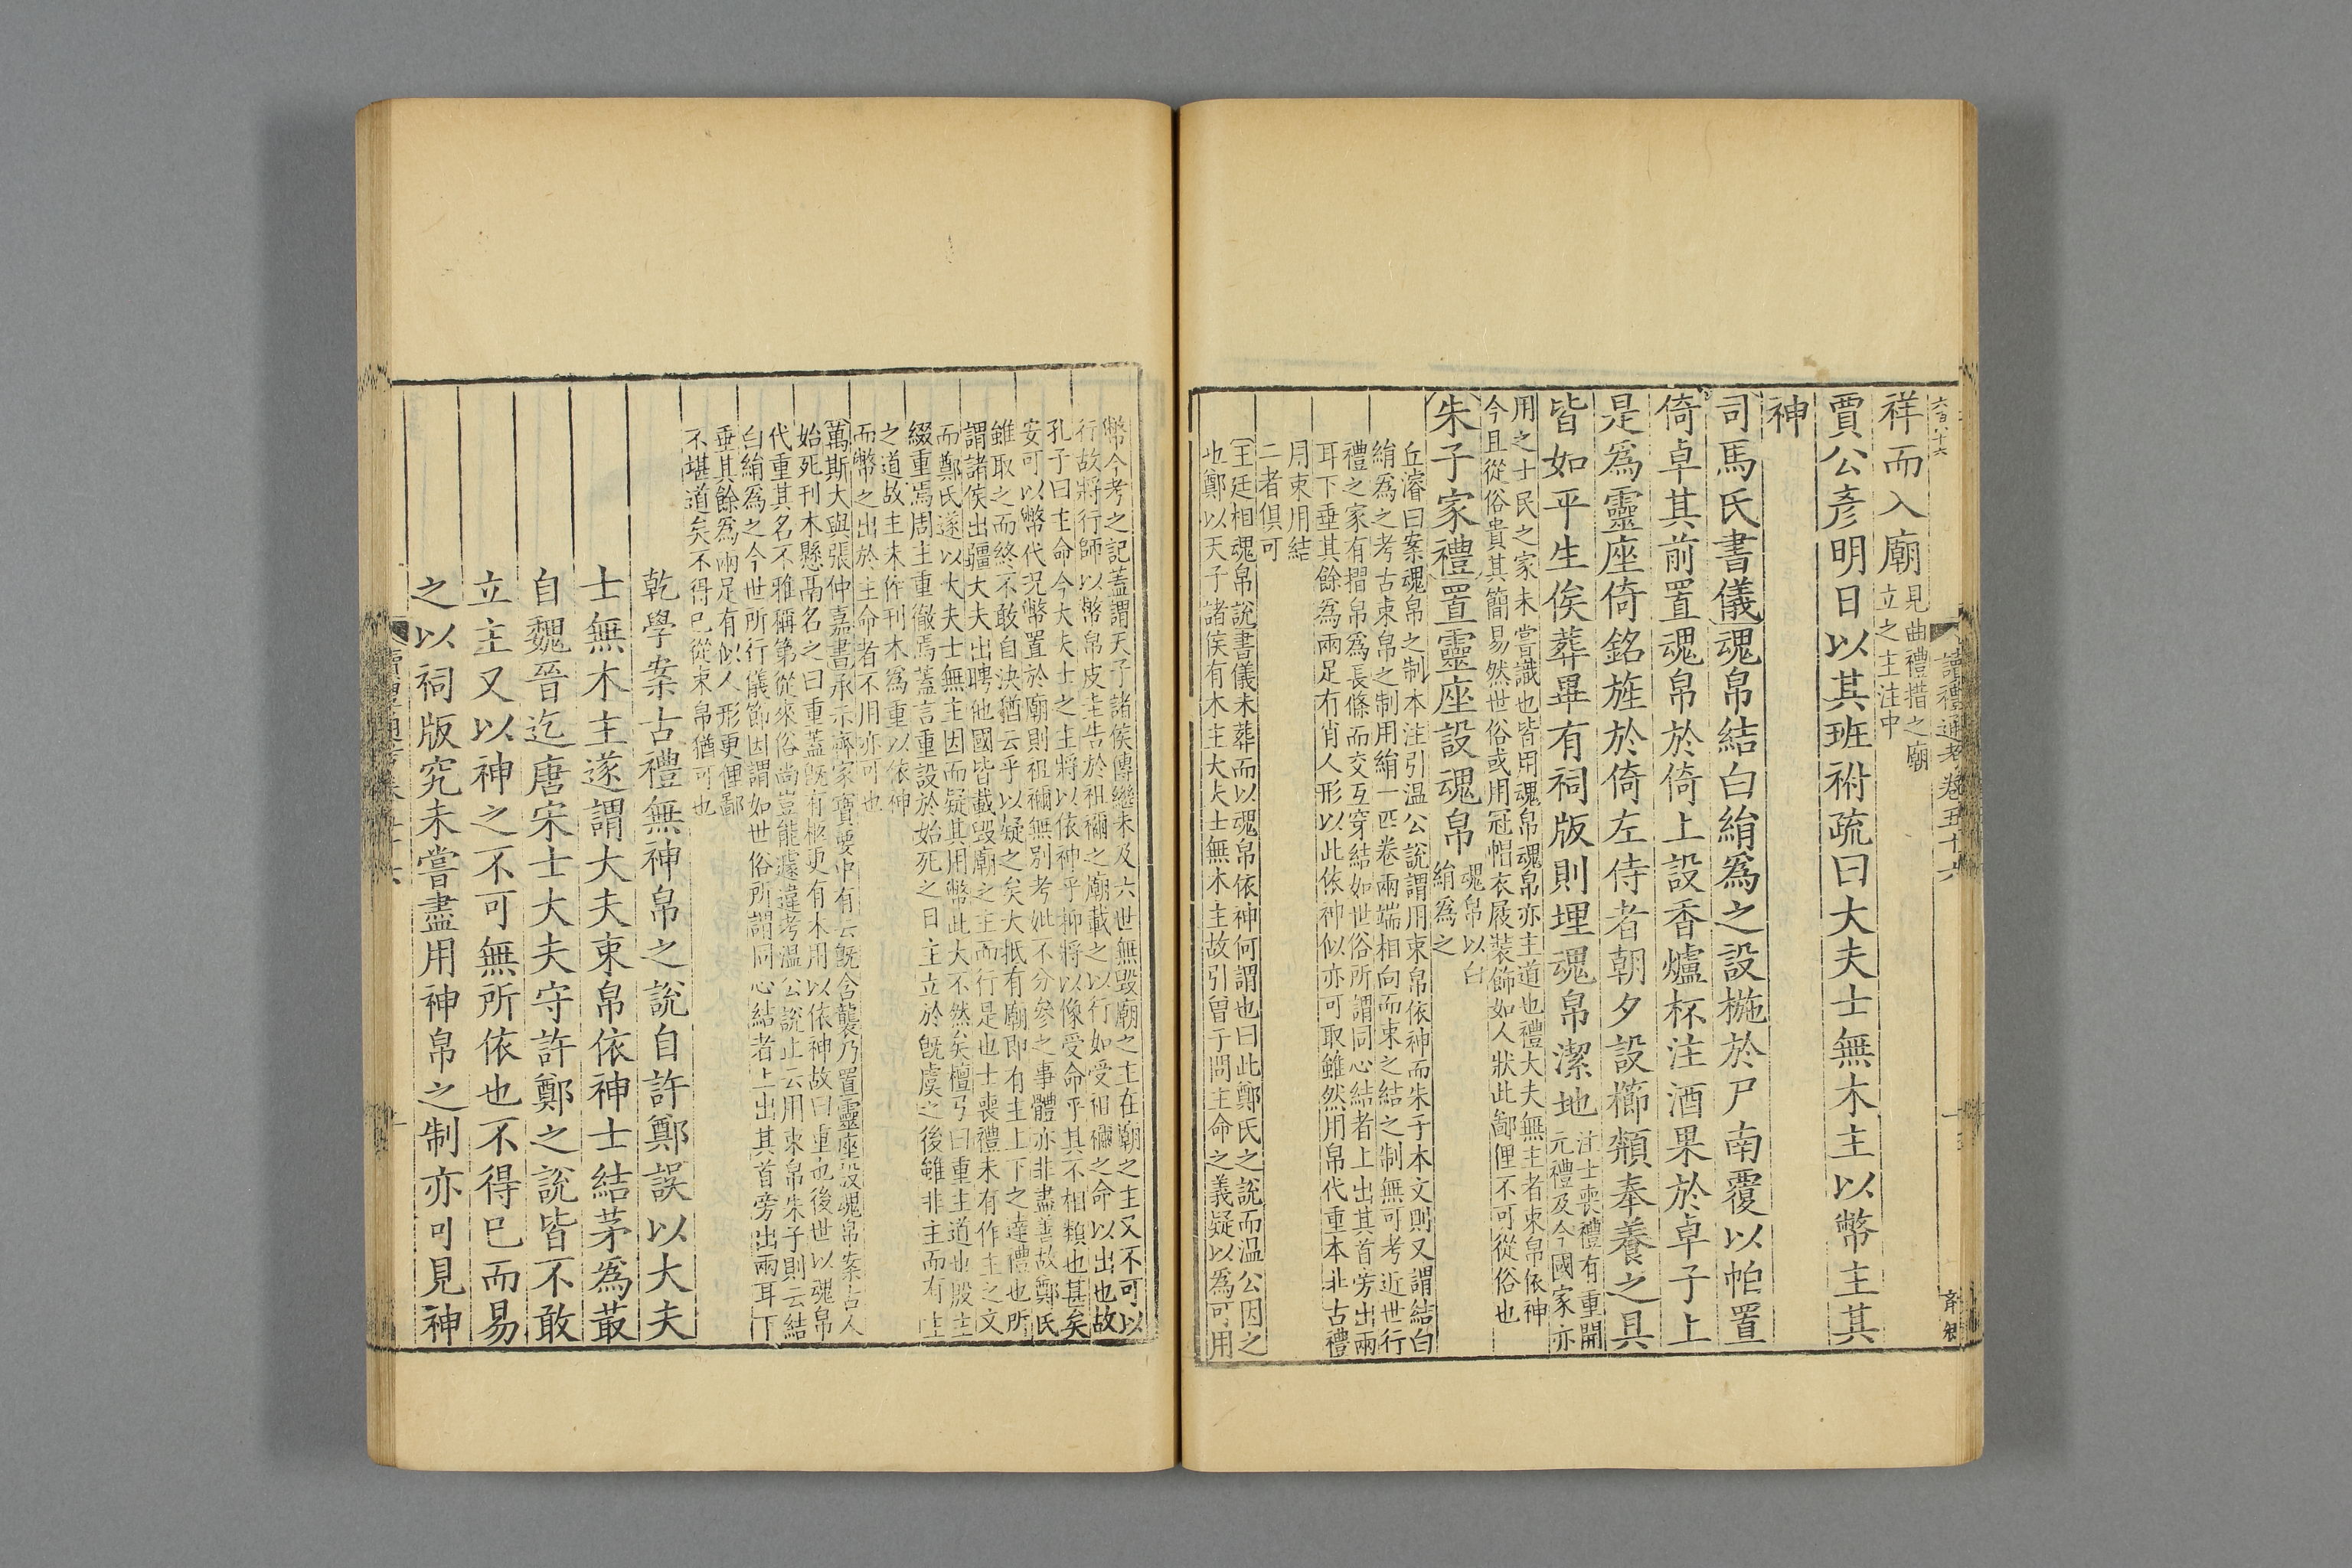 六百八十六
讀禮通考卷五十六
祥而入廟見曲禮措之廟
立之主注中
賈公彥明日以其班祔疏曰大夫士無木主以幣主其
神
司馬氏書儀魂帛結白絹爲之設椸於尸南覆以帕置
倚卓其前置魂帛於倚上設香爐杯注酒果於卓子上
是爲靈座倚銘旌於倚左侍者朝夕設櫛頮奉養之具
皆如平生俟葬畢有祠版則埋魂帛潔地注士喪禮有重開
元禮及今國家亦
用之士民之家未嘗識也皆用魂帛魂帛亦主道也禮大夫無主者束帛依神
今且從俗貴其簡易然世俗或用冠帽衣屐裝飾如人狀此鄙俚不可從俗也
朱子家禮置靈座設魂帛魂帛以白
絹爲之
丘濬曰案魂帛之制本注引温公說謂用束帛依神而朱子本文則又謂結白
絹爲之考古束帛之制用絹一匹卷兩端相向而束之結之制無可考近世行
禮之家有摺帛爲長條而交互穿結如世俗所謂同心結者上出其首旁出兩
耳下垂其餘爲兩足有肖人形以此依神似亦可取雖然用帛代重本非古禮
用束用結
二者俱可
王廷相魂帛說書儀未葬而以魂帛依神何謂也曰此鄭氏之說而温公因之
也鄭以天子諸侯有木主大夫士無木主故引曾子問主命之義疑以爲可用
幣今考之記蓋謂天子諸侯傳繼未及六世無毁廟之主在廟之主又不可以
行故將行師以幣帛皮圭告於祖禰之廟載之以行如受祖禰之命以出也故
孔子曰主命今大夫士之主將以依神乎抑將以像受命乎其不相類也甚矣
安可以幣代況幣置於廟則祖禰無別考妣不分參之事體亦非盡善故鄭氏
雖取之而終不敢自決猶云乎以疑之矣大抵有廟即有主上下之達禮也所
謂諸侯出疆大夫出聘他國皆載毁廟之主而行是也士喪禮未有作主之文
而鄭氏遂以大夫士無主因而疑其用幣此大不然矣檀弓曰重主道也殷主
綴重焉周主重徹焉蓋言重設於始死之日主立於旣虞之後雖非主而有主
之道故主未作刊木爲重以依神
而幣之出於主命者不用亦可也
萬斯大與張仲嘉書承示齊家寶要中有云旣含襲乃置靈座設魂帛案古人
始死刊木懸鬲名之曰重蓋旣有柩更有木用以依神故曰重也後世以魂帛
代重其名不雅稱第從來俗尚豈能遽違考温公說止云用束帛朱子則云結
白絹爲之今世所行儀節因謂如世俗所謂同心結者上出其首旁出兩耳下
垂其餘爲兩足有似人形更俚鄙
不堪道矣不得已從束帛猶可也
乾學案古禮無神帛之說自許鄭誤以大夫
士無木主遂謂大夫束帛依神士結茅爲菆
自魏晉迄唐宋士大夫守許鄭之說皆不敢
立主又以神之不可無所依也不得已而易
之以祠版究未嘗盡用神帛之制亦可見神